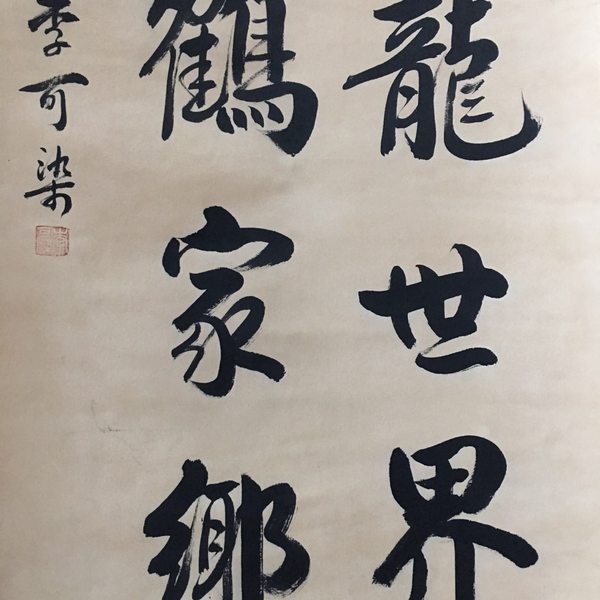 龍世界
鶴家鄉
李可染